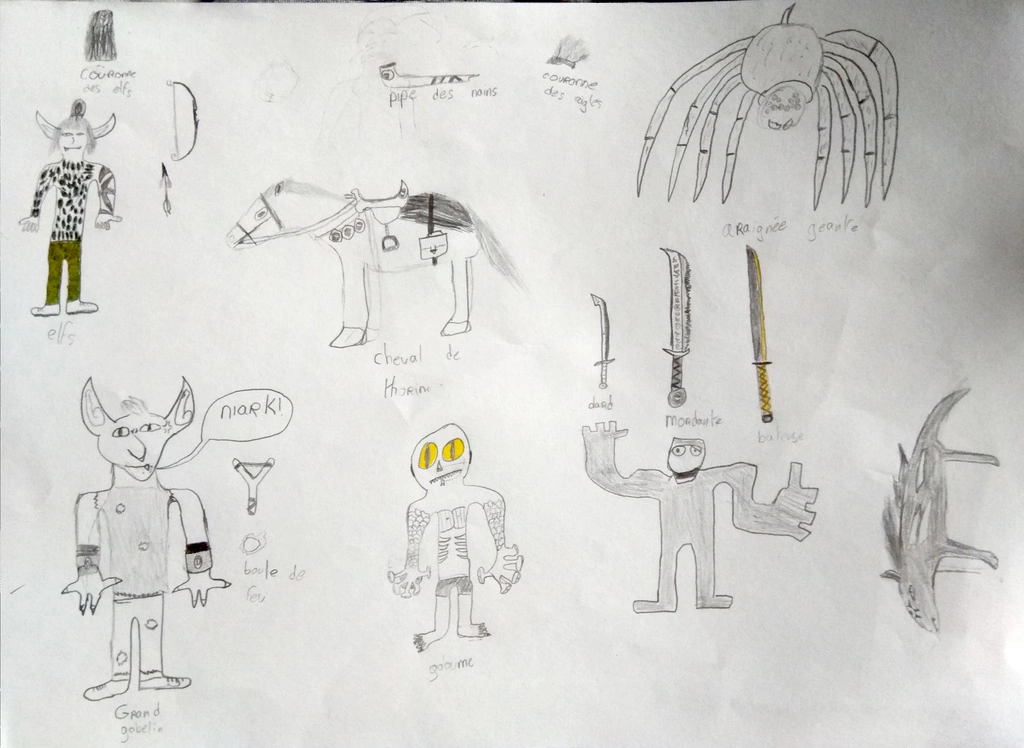 couronne
des elfs
pipe des nains
couronne
des aigles
araignée géante
elfs
cheval de
Thorin
dard
mordante
bateuse
niark!
boule de
feu
goloume
Grand
gobelin